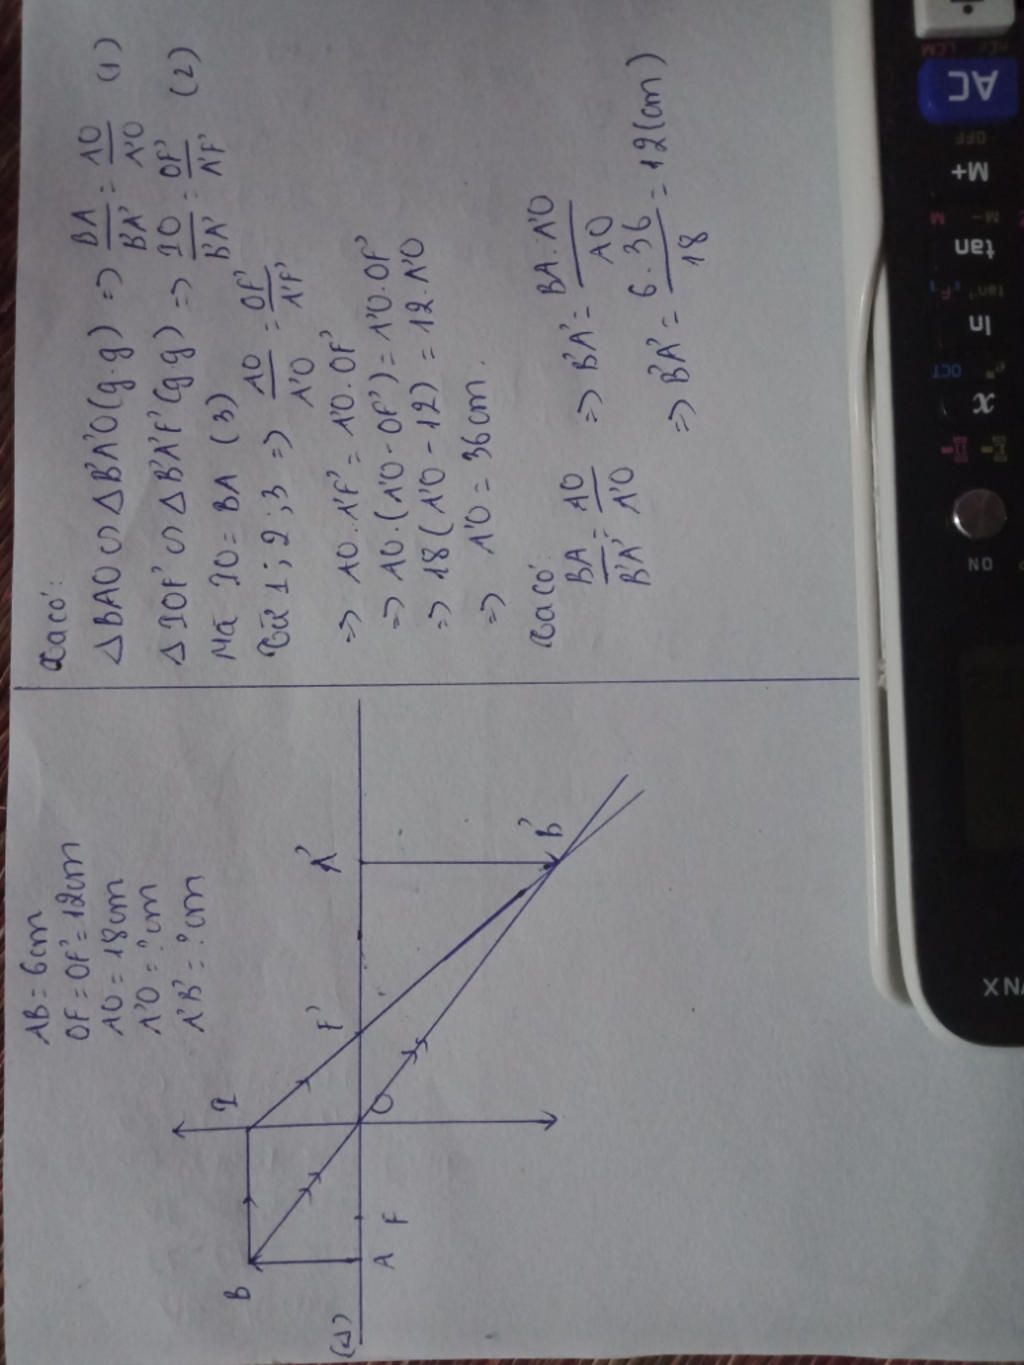 AB = 6cm
OF = OF' = 12cm
AO = 18cm
A'O = ? cm
A'B' = ? cm
B
I
F'
A'
(Δ)
A
F
O
B'
Ta có:
Δ BAO ∽ Δ B'A'O (g.g) => BA/B'A' = AO/A'O (1)
Δ IOF' ∽ Δ B'A'F' (g.g) => IO/B'A' = OF'/A'F' (2)
Mà IO = BA (3)
Từ 1; 2; 3 => AO/A'O = OF'/A'F'
=> AO.A'F' = A'O.OF'
=> AO.(A'O - OF') = A'O.OF'
=> 18(A'O - 12) = 12.A'O
=> A'O = 36cm.
Ta có:
BA/B'A' = AO/A'O => B'A' = BA.A'O/AO
=> B'A' = 6.36/18 = 12(cm)
AC
OFF
M+
M- M
tan
tan⁻¹
ln
OCT
x
ON